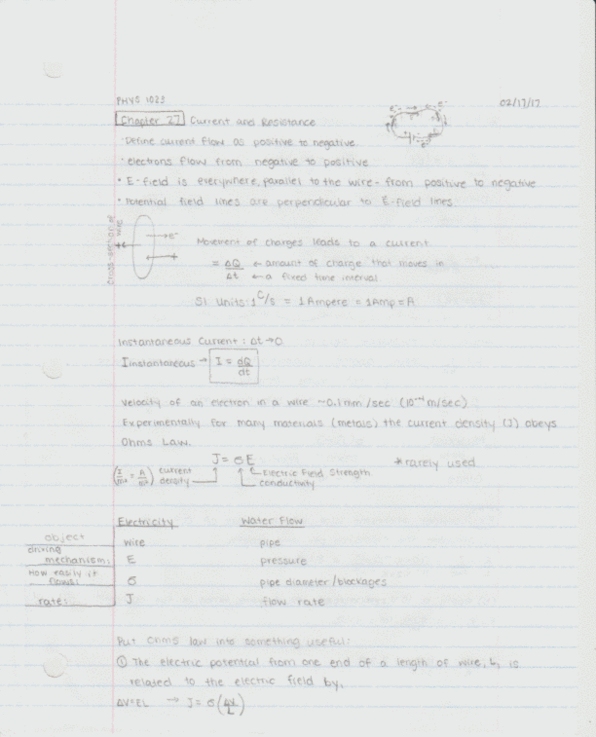 PHYS 1023 02/17/17
Chapter 27 Current and Resistance
· Define current flow as positive to negative
· electrons flow from negative to positive
• E-field is everywhere, parallel to the wire - from positive to negative
• Potential field lines are perpendicular to E-field lines
cross-section of wire
e-
Movement of charges leads to a current
= ΔQ ← amount of charge that moves in
Δt ← a fixed time interval
SI Units: 1 C/s = 1 Ampere = 1 Amp = A
Instantaneous Current: Δt → 0
Iinstantaneous → I = dQ
dt
Velocity of an electron in a wire ~0.1mm/sec (10⁻⁴ m/sec)
Experimentally for many materials (metals) the current density (J) obeys
Ohms Law.
J = σE *rarely used
(I/m² = A/m²) current density Electric Field Strength
conductivity
Electricity Water Flow
object wire pipe
driving mechanism: E pressure
How easily it flows: σ pipe diameter/blockages
rate: J flow rate
Put Ohms law into something useful:
① The electric potential from one end of a length of wire, L, is
related to the electric field by,
ΔV=EL → J = σ(ΔV/L)